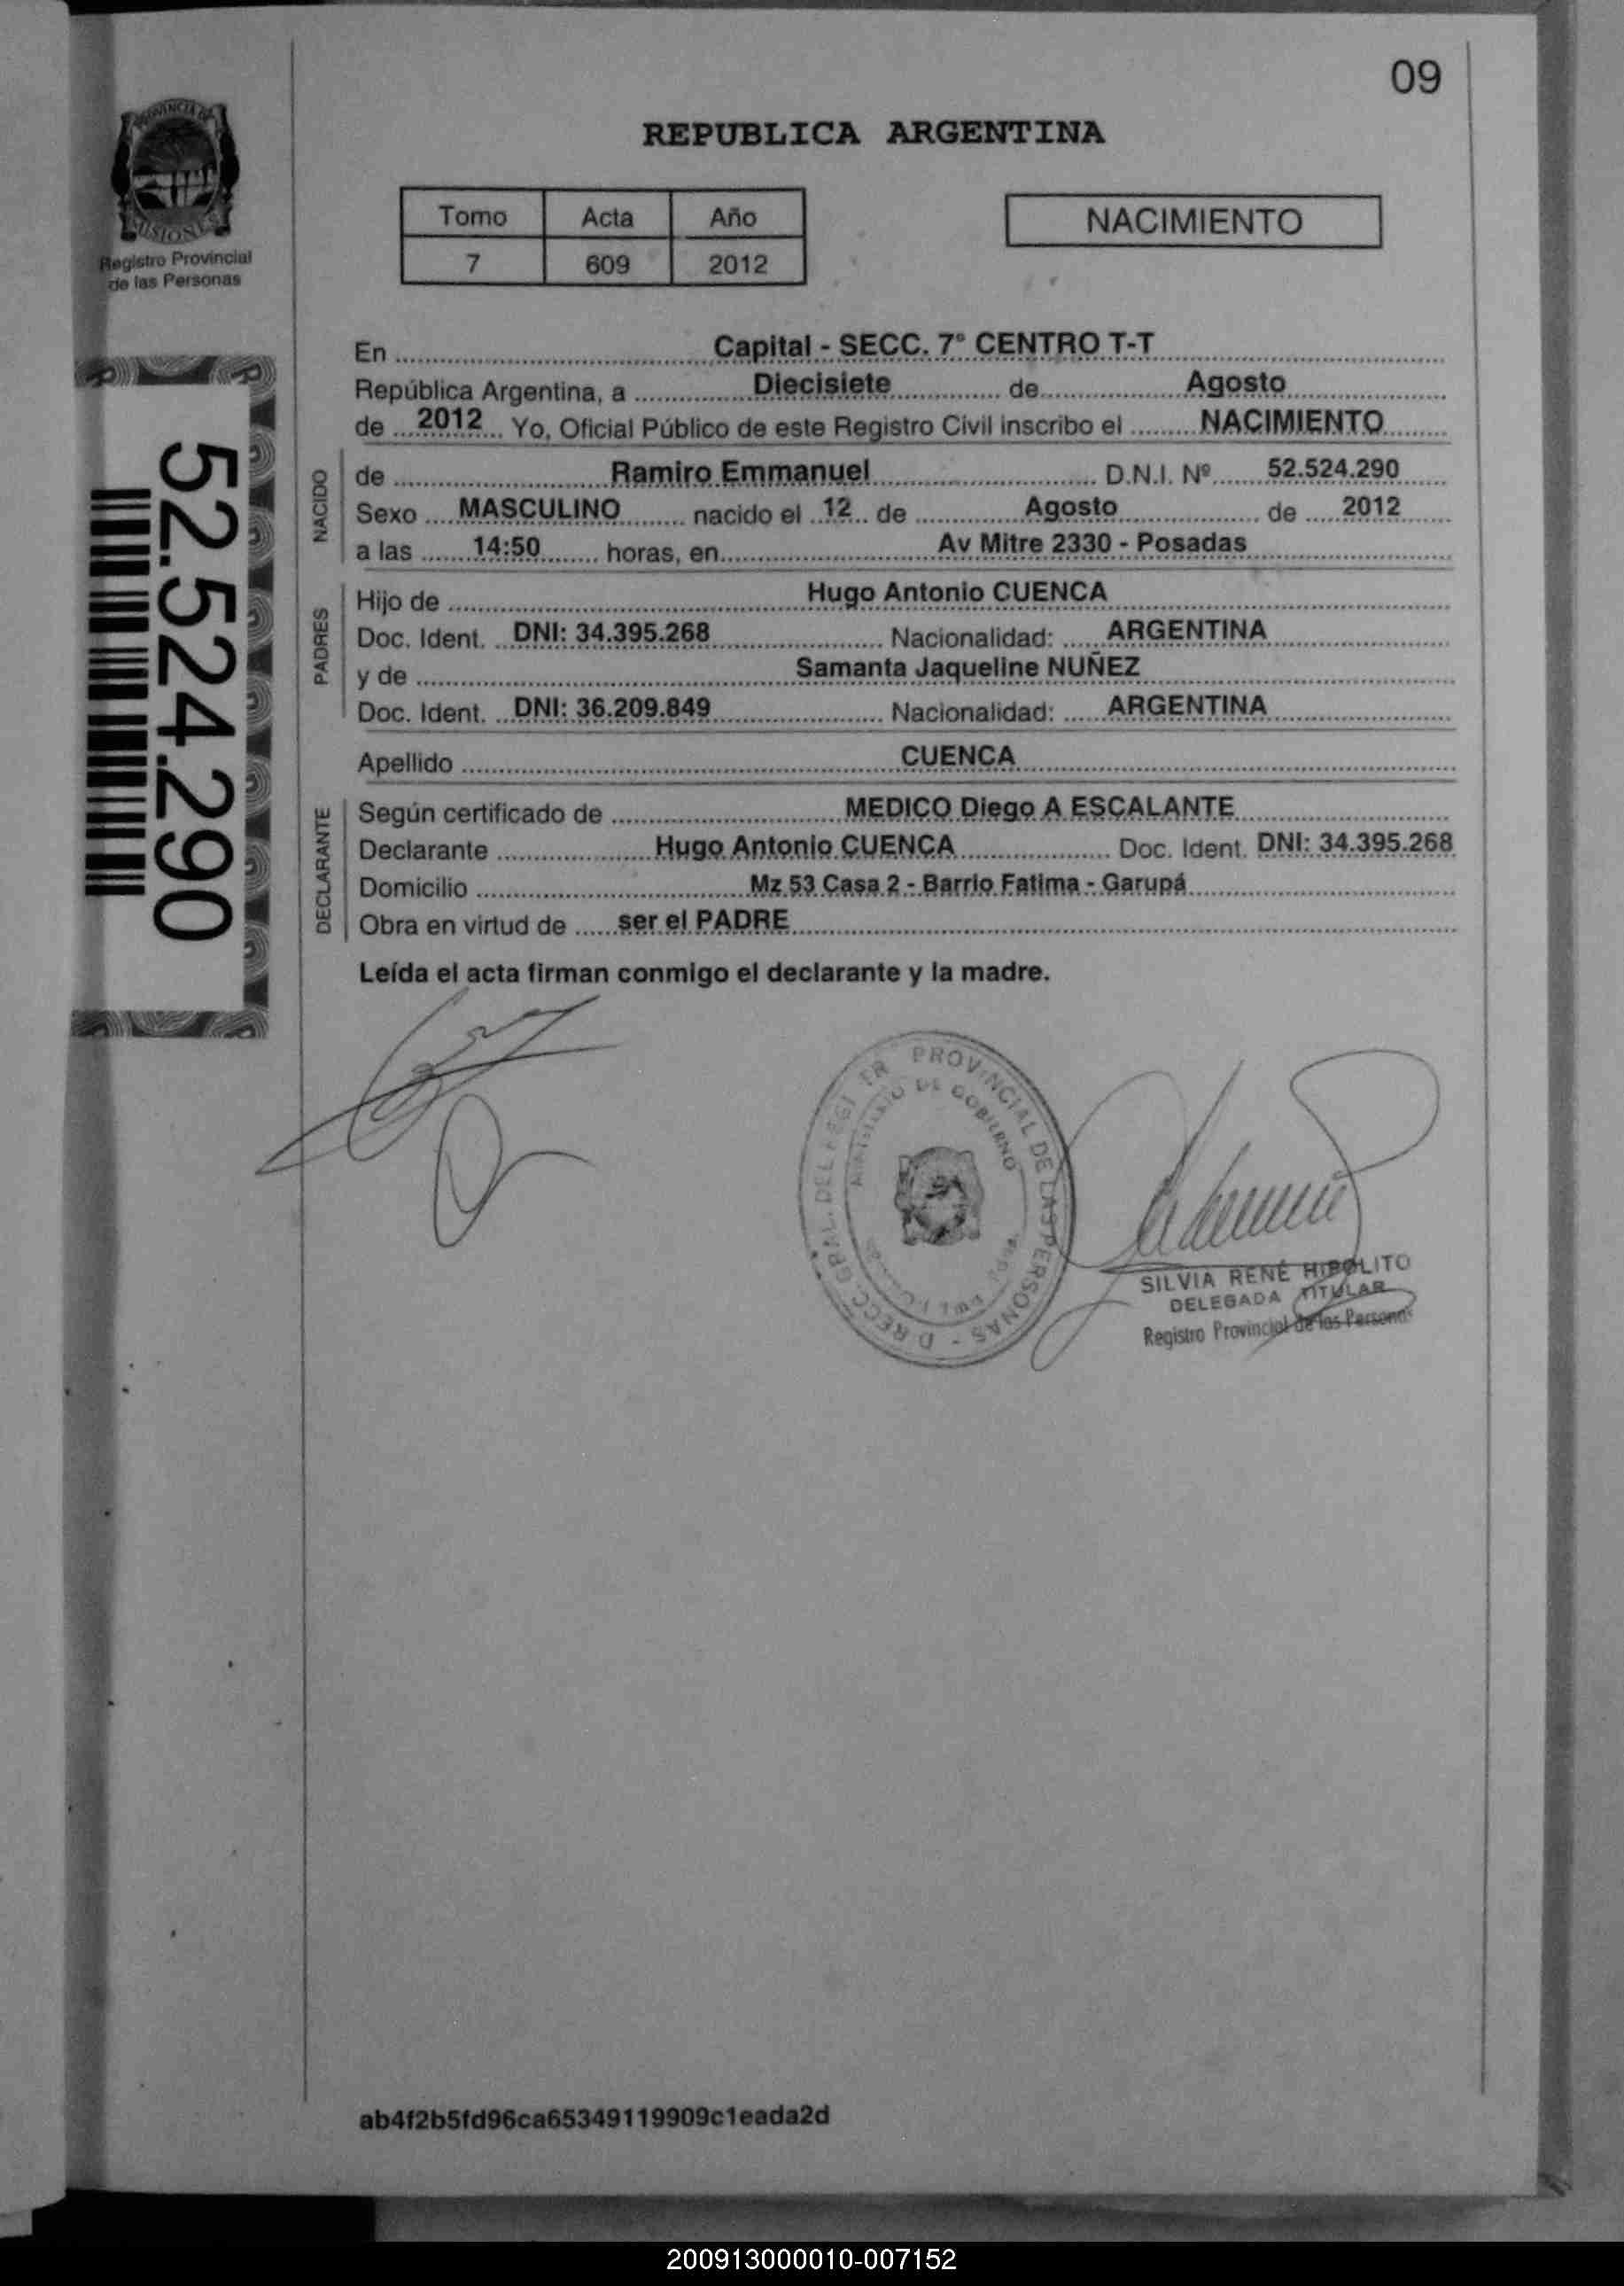 09
PROVINCIA DE
MISIONES
Registro Provincial
de las Personas
REPUBLICA ARGENTINA
Tomo Acta Año
7 609 2012
NACIMIENTO
52.524.290
En Capital - SECC. 7º CENTRO T-T
República Argentina, a Diecisiete de Agosto
de 2012 Yo, Oficial Público de este Registro Civil inscribo el NACIMIENTO
NACIDO
de Ramiro Emmanuel D.N.I. Nº 52.524.290
Sexo MASCULINO nacido el 12 de Agosto de 2012
a las 14:50 horas, en Av Mitre 2330 - Posadas
PADRES
Hijo de Hugo Antonio CUENCA
Doc. Ident. DNI: 34.395.268 Nacionalidad: ARGENTINA
y de Samanta Jaqueline NUÑEZ
Doc. Ident. DNI: 36.209.849 Nacionalidad: ARGENTINA
Apellido CUENCA
DECLARANTE
Según certificado de MEDICO Diego A ESCALANTE
Declarante Hugo Antonio CUENCA Doc. Ident. DNI: 34.395.268
Domicilio Mz 53 Casa 2 - Barrio Fatima - Garupá
Obra en virtud de ser el PADRE
Leída el acta firman conmigo el declarante y la madre.
PROVINCIAL DE LAS PERSONAS
DE GOBIERNO
SILVIA RENÉ HIPÓLITO
DELEGADA TITULAR
Registro Provincial de las Personas
ab4f2b5fd96ca65349119909c1eada2d
200913000010-007152